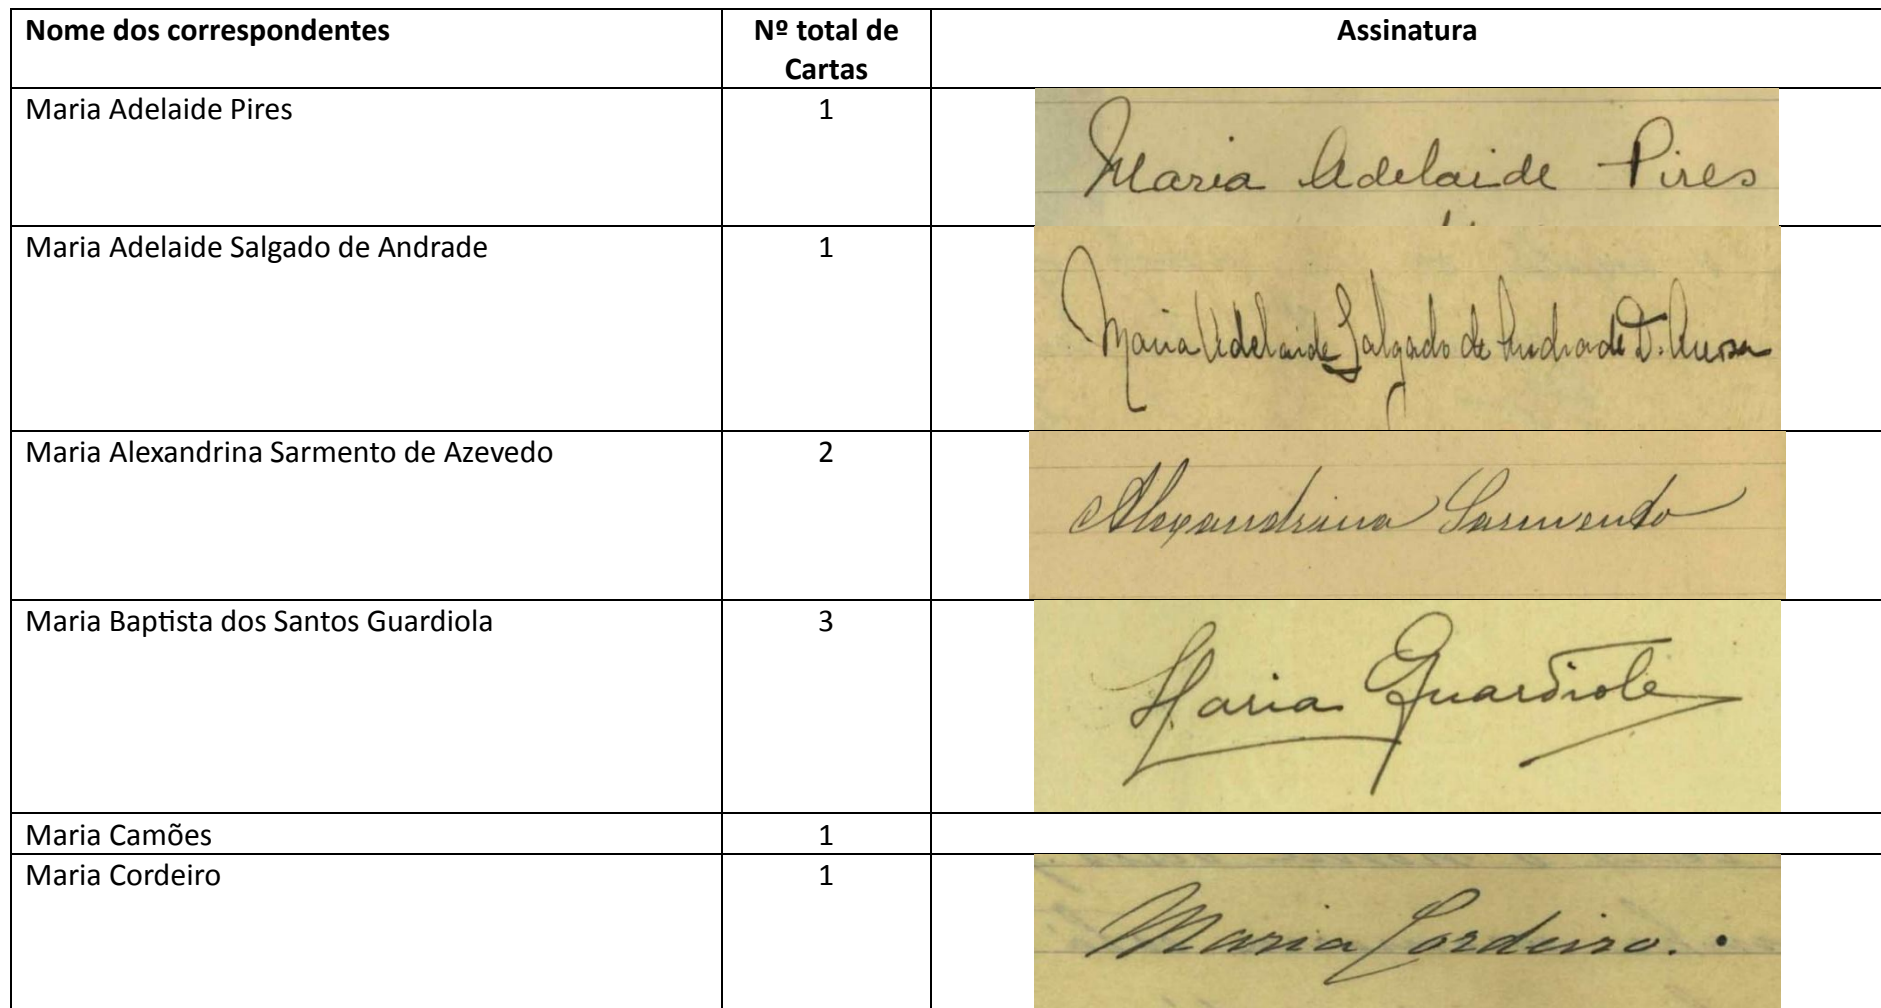 Nome dos correspondentes
Nº total de
Cartas
Assinatura
Maria Adelaide Pires
1
Maria Adelaide Pires
Maria Adelaide Salgado de Andrade
1
Maria Adelaide Salgado de Andrade D.
Maria Alexandrina Sarmento de Azevedo
2
Alexandrina Sarmento
Maria Baptista dos Santos Guardiola
3
Maria Guardiola
Maria Camões
1
Maria Cordeiro
1
Maria Cordeiro.